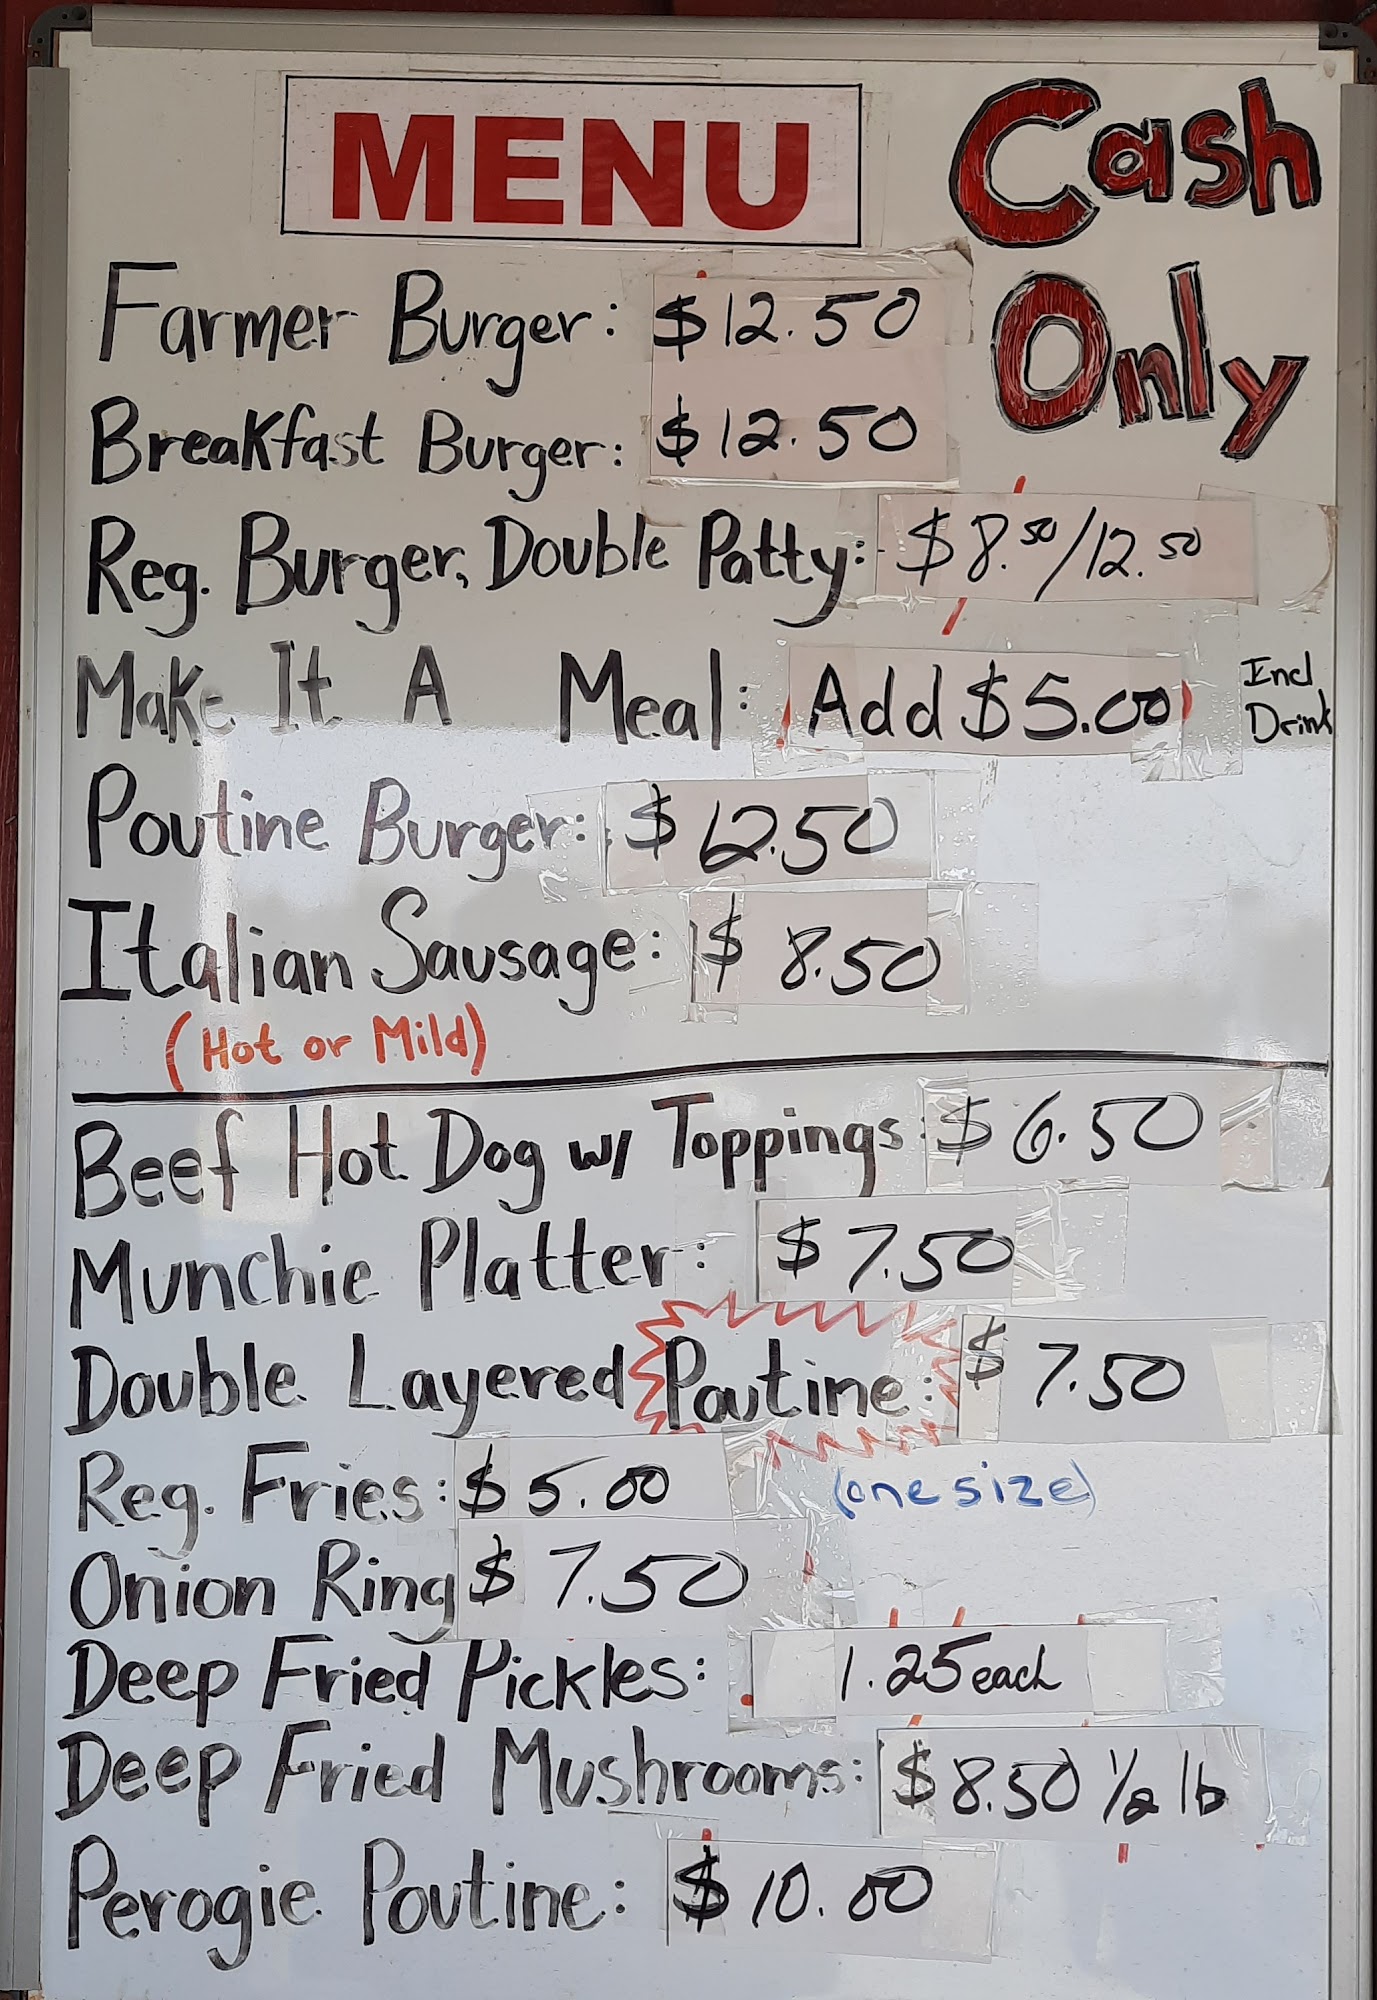 MENU
Cash
Only
Farmer Burger: $12.50
Breakfast Burger: $12.50
Reg. Burger, Double Patty: $8.50/12.50
Make It A Meal: Add $5.00 Incl Drink
Poutine Burger: $12.50
Italian Sausage: $8.50
(Hot or Mild)
Beef Hot Dog w/ Toppings: $6.50
Munchie Platter: $7.50
Double Layered Poutine: $7.50
Reg. Fries: $5.00 (one size)
Onion Ring $7.50
Deep Fried Pickles: 1.25 each
Deep Fried Mushrooms: $8.50 1/2 lb
Perogie Poutine: $10.00